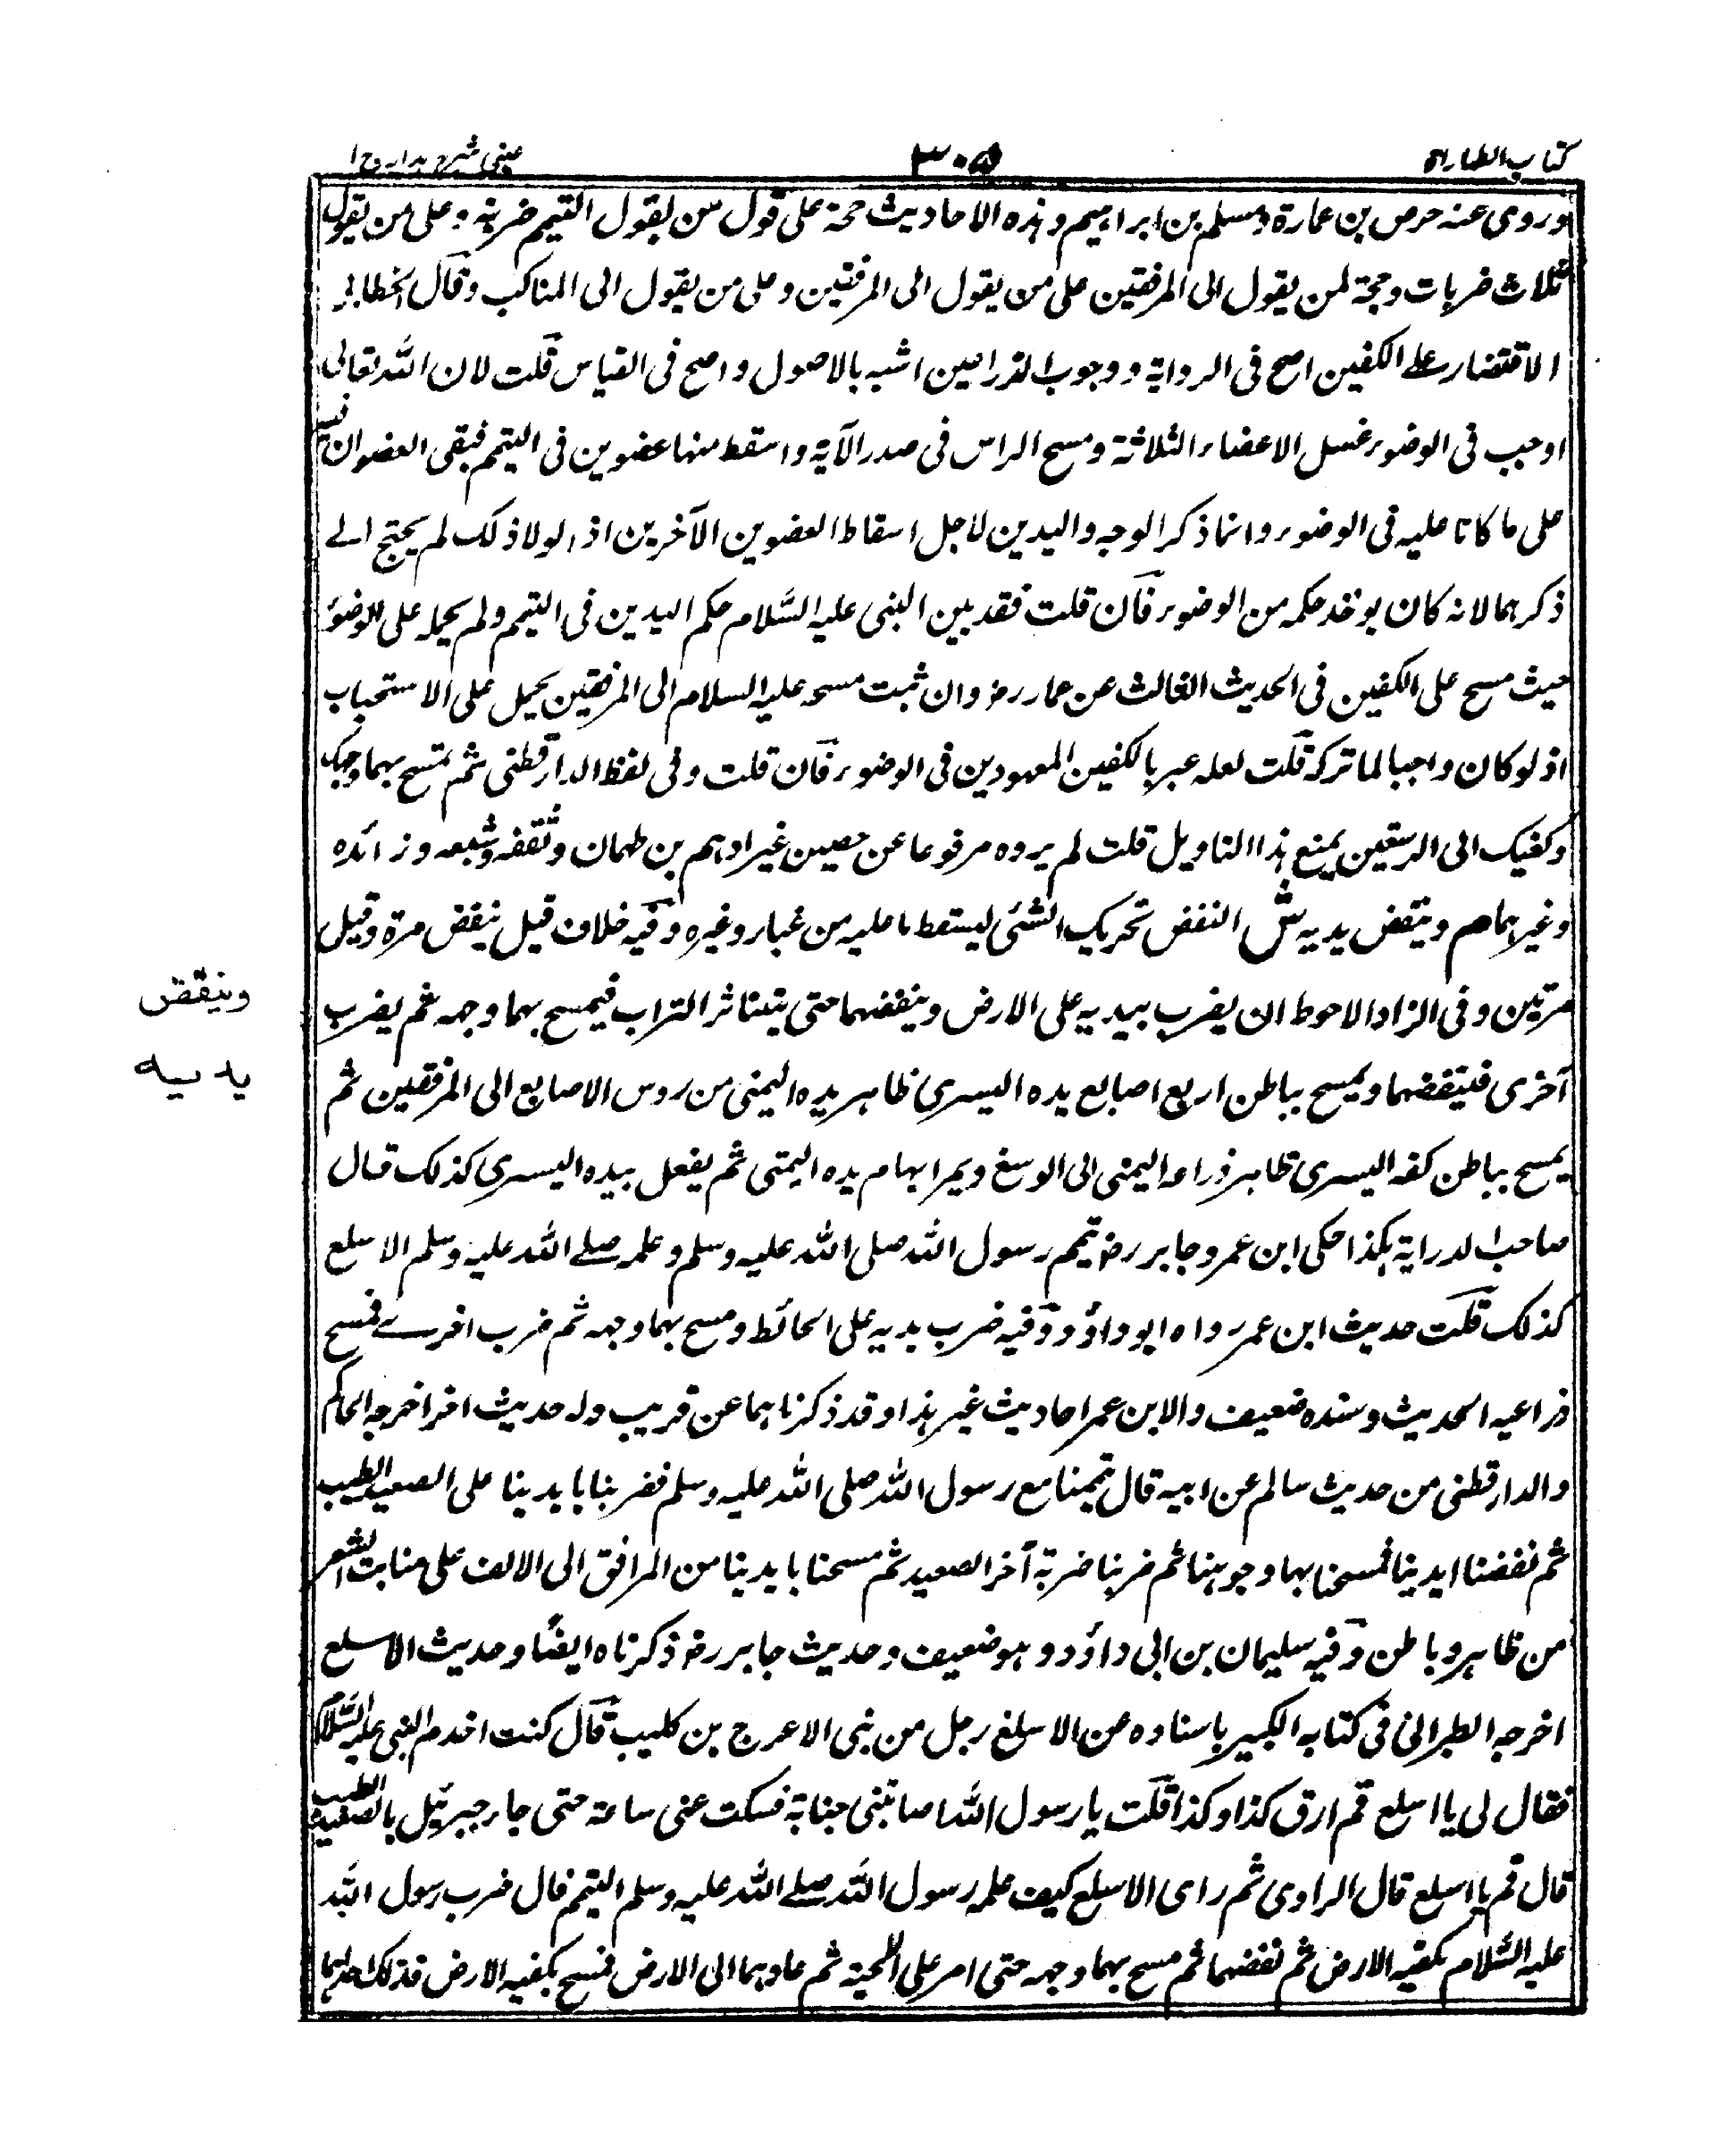 كتاب الطهارة
٣٠٥
عينى شرح هدايه ج ١
وروى عنه حرص بن عمارة ومسلم بن ابراهيم وهذه الاحاديث حجة على قول من يقول التيمم ضربة وعلى من يقول
ثلاث ضربات وحجة لمن يقول الى المرفقين على من يقول الى المرفقين وعلى من يقول الى المناكب وقال الخطابى
الاقتصار على الكفين اصح فى الرواية ووجوب الذراعين اشبه بالاصول واصح فى القياس قلت لان الله تعالى
اوجب فى الوضوء غسل الاعضاء الثلاثة ومسح الراس فى صدر الآية واسقط منها عضوين فى التيمم فبقى العضوان فيه
على ما كانا عليه فى الوضوء وانما ذكر الوجه واليدين لاجل اسقاط العضوين الآخرين اذ لولا ذلك لم يحتج الى
ذكرهما لانه كان يوخذ حكمه من الوضوء فان قلت فقد بين النبى عليه السلام حكم اليدين فى التيمم ولم يحله على الوضوء
حيث مسح على الكفين فى الحديث الثالث عن عمار رضـ وان ثبت مسحه عليه السلام الى المرفقين يحمل على الاستحباب
اذ لو كان واجبا لما تركه قلت لعله عبر بالكفين المعهودين فى الوضوء فان قلت وفى لفظ الدارقطنى ثم تمسح بهما وجهك
وكفيك الى الرسغين يمنع هذا التاويل قلت لم يروه مرفوعا عن حصين غير ابراهيم بن طهمان وثقفه وشعبه وزائده
وغيرهما هم وينقض يديه ش النفض تحريك الشئ ليسقط ما عليه من غبار وغيره وفيه خلاف قيل ينفض مرة وقيل
مرتين وفى الزاد الاحوط ان يضرب بيديه على الارض وينفضهما حتى يتناثر التراب فيمسح بهما وجهه ثم يضرب
وينقض
يديه
آخرى فينفضهما ويمسح بباطن اربع اصابع يده اليسرى ظاهر يده اليمنى من روس الاصابع الى المرفقين ثم
يمسح بباطن كفه اليسرى ظاهر ذراعه اليمنى الى الوسغ ويمر ابهام يده اليمتى ثم يفعل بيده اليسرى كذلك قال
صاحب الدراية هكذا حكى ابن عمر وجابر رضـ تيمم رسول الله صلى الله عليه وسلم وعلمه صلے الله عليه وسلم الاسلع
كذلك قلت حديث ابن عمر رواه ابو داؤد وفيه ضرب بديه على الحائط ومسح بهما وجهه ثم ضرب اخرے فمسح
ذراعيه الحديث وسنده ضعيف والابن عمر احاديث غير هذا وقد ذكرناهما عن قريب وله حديث اخر اخرجه الحاكم
والدارقطنى من حديث سالم عن ابيه قال تيممنا مع رسول الله صلى الله عليه وسلم فضربنا بايدينا على الصعيد الطيب
ثم نفضنا ايدينا فمسحنا بها وجوهنا ثم ضربنا ضربة آخر الصعيد ثم مسحنا بايدينا من المرافق الى الالف على منابت الشعر
من ظاهر وباطن وفيه سليمان بن ابى داؤد وهو ضعيف وحديث جابر رضـ ذكرناه ايضًا وحديث الاسلع
اخرجه الطبرانى فى كتابه الكبير باسناده عن الاسلغ رجل من بنى الاعرج بن كليب قال كنت اخدم النبى عليه السلام
فقال لى يا اسلع قم ارق كذا وكذا قلت يا رسول الله اصابتنى جنابة فسكت عنى ساعة حتى جاء جبرئيل بالصعيد الطيب
قال قم يا اسلع قال الراوى ثم راى الاسلع كيف علمه رسول الله صلے الله عليه وسلم التيمم قال ضرب رسول الله
عليه السلام بكفيه الارض ثم نفضهما ثم مسح بهما وجهه حتى امر على اللحية ثم عاد بهما الى الارض فمسح بكفيه الارض فدلك احدهما